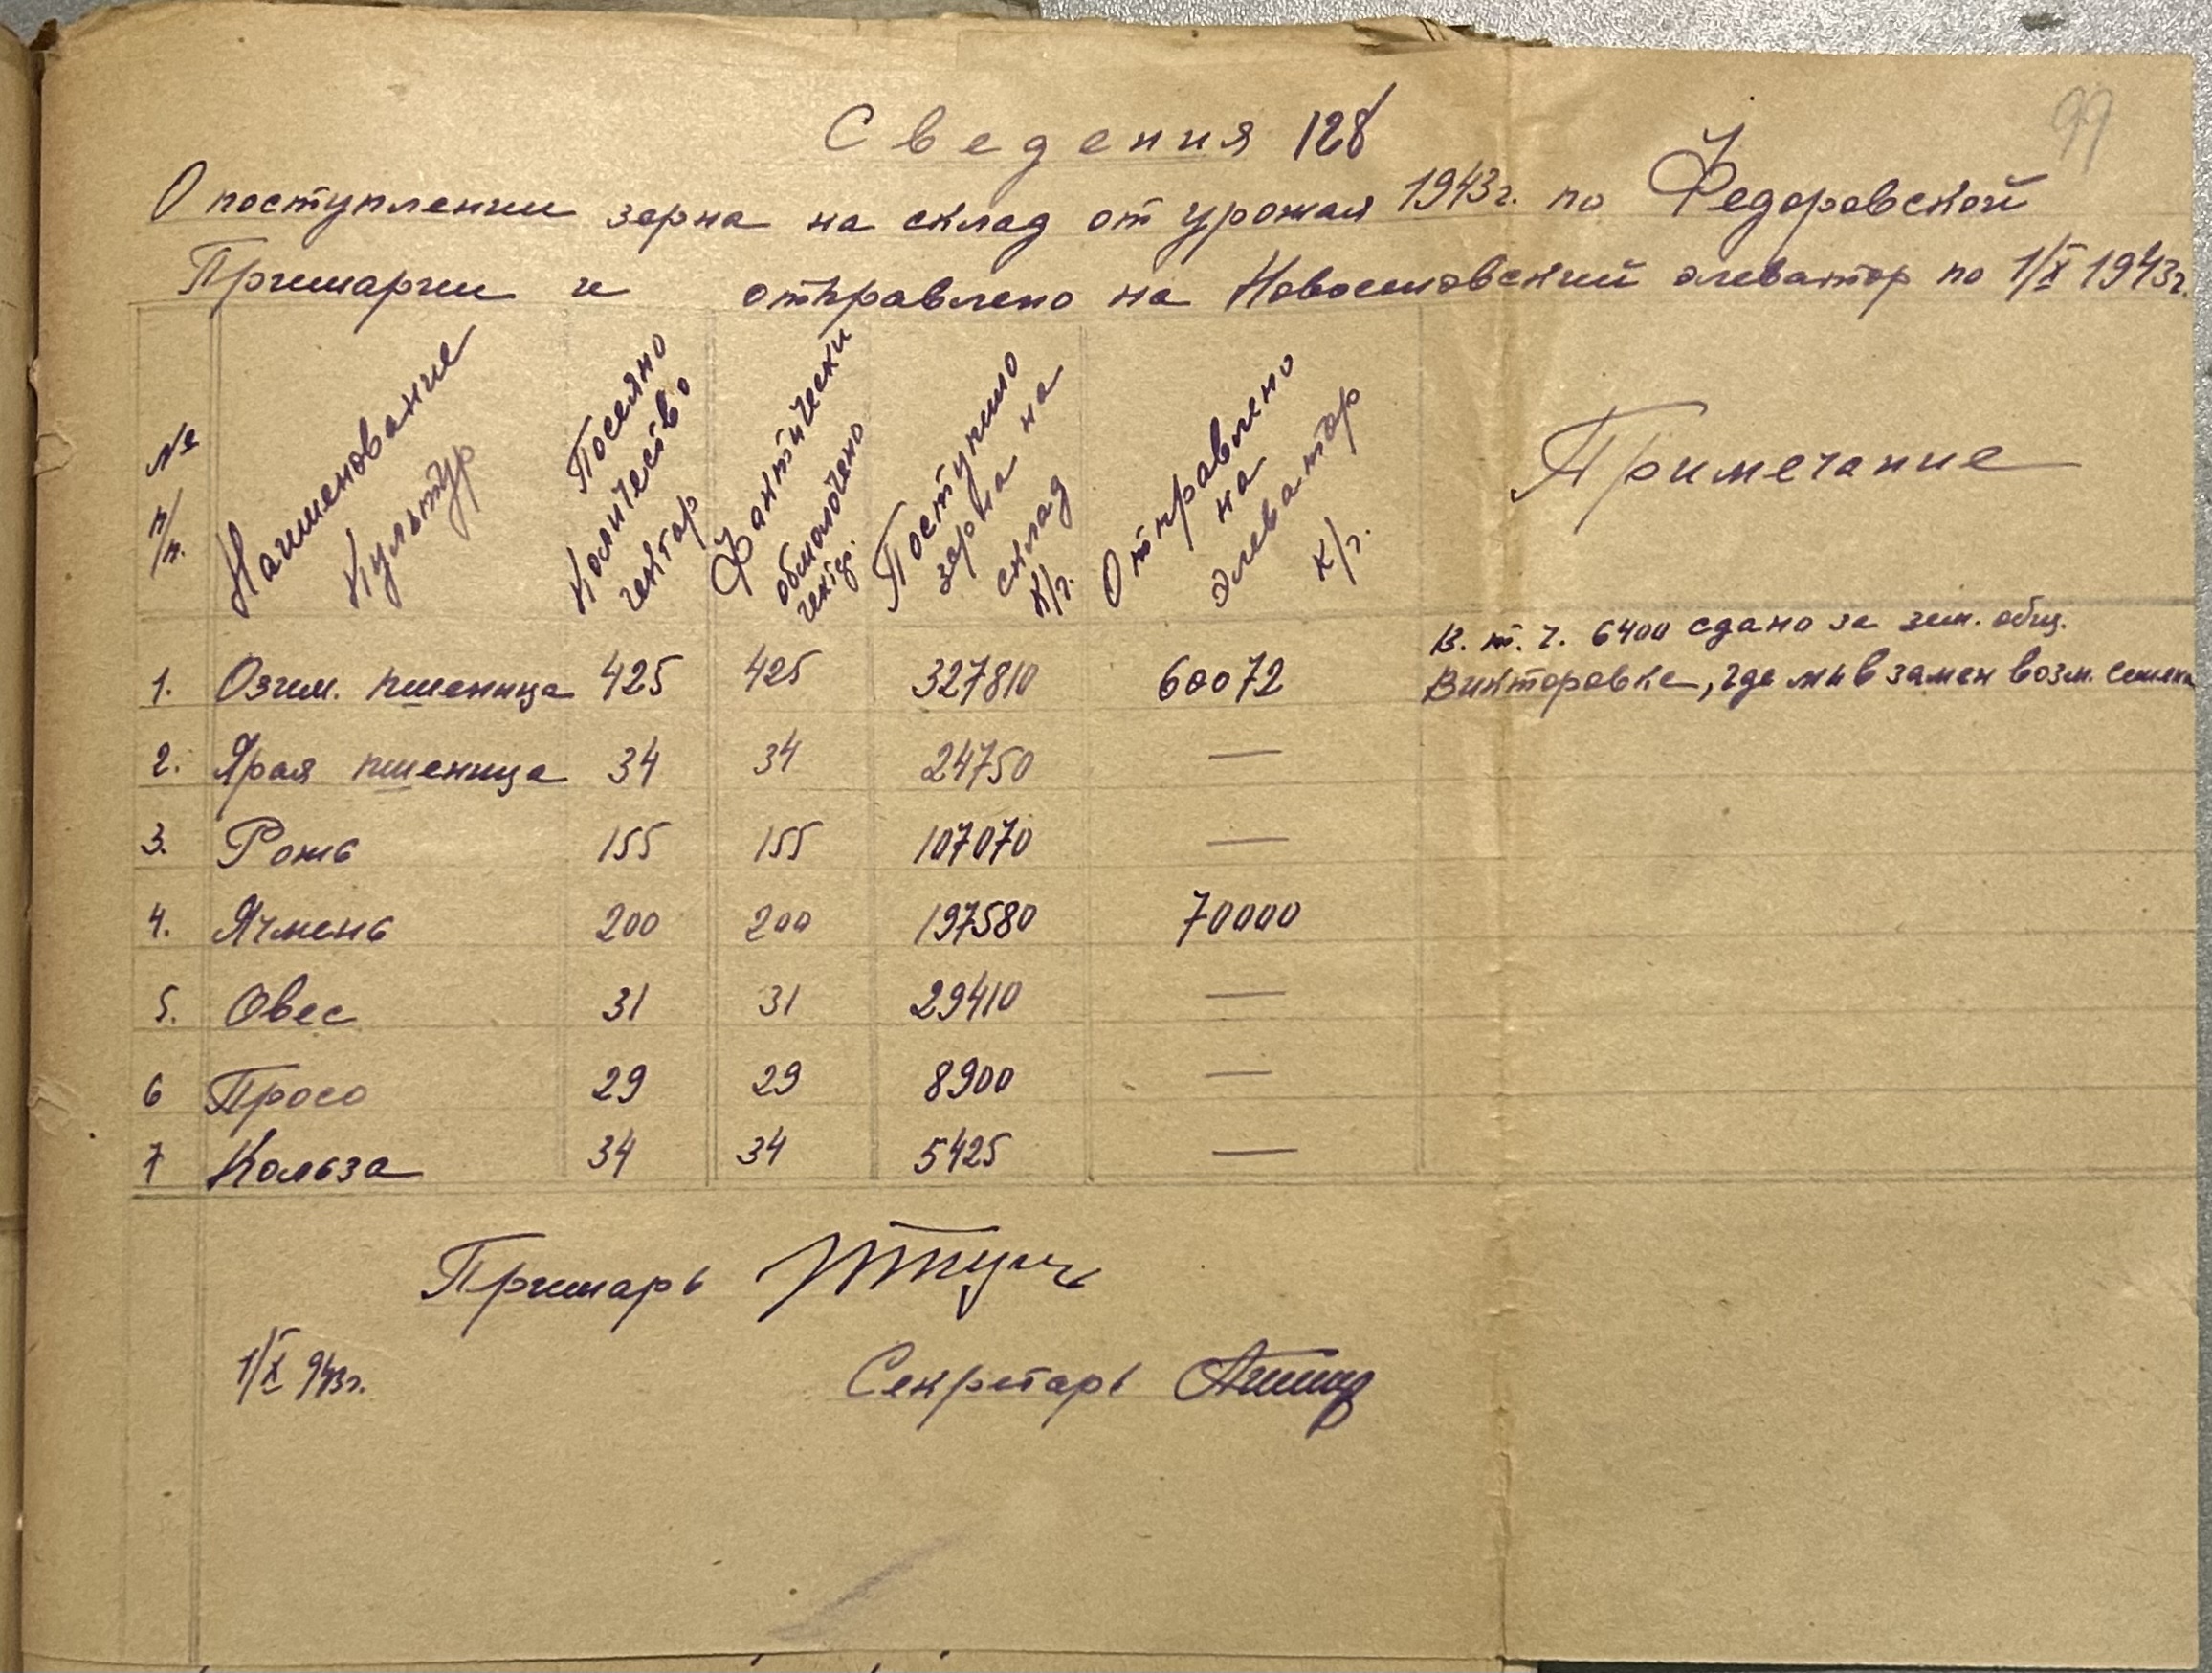 99
Сведения 128
О поступлении зерна на склад от урожая 1943г. по Федоровской
Примарии и отправлено на Новоселовский элеватор по 1/X 1943г.
№ п/п. Наименование Культур Посеяно Количество гектар Фактически обмолочено гект. Поступило зерна на склад к/г. Отправлено на элеватор к/г. Примечание
В. т. ч. 6400 сдано за зем. общ.
1. Озим. пшеница 425 425 327810 60072 Викторовке, где мы в замен возм. семена
2. Ярая пшеница 34 34 24750 —
3. Рожь 155 155 107070 —
4. Ячмень 200 200 197580 70000
5. Овес 31 31 29410 —
6 Просо 29 29 8900 —
7 Кользa 34 34 5425 —
Примарь
1/X 943г. Секретарь